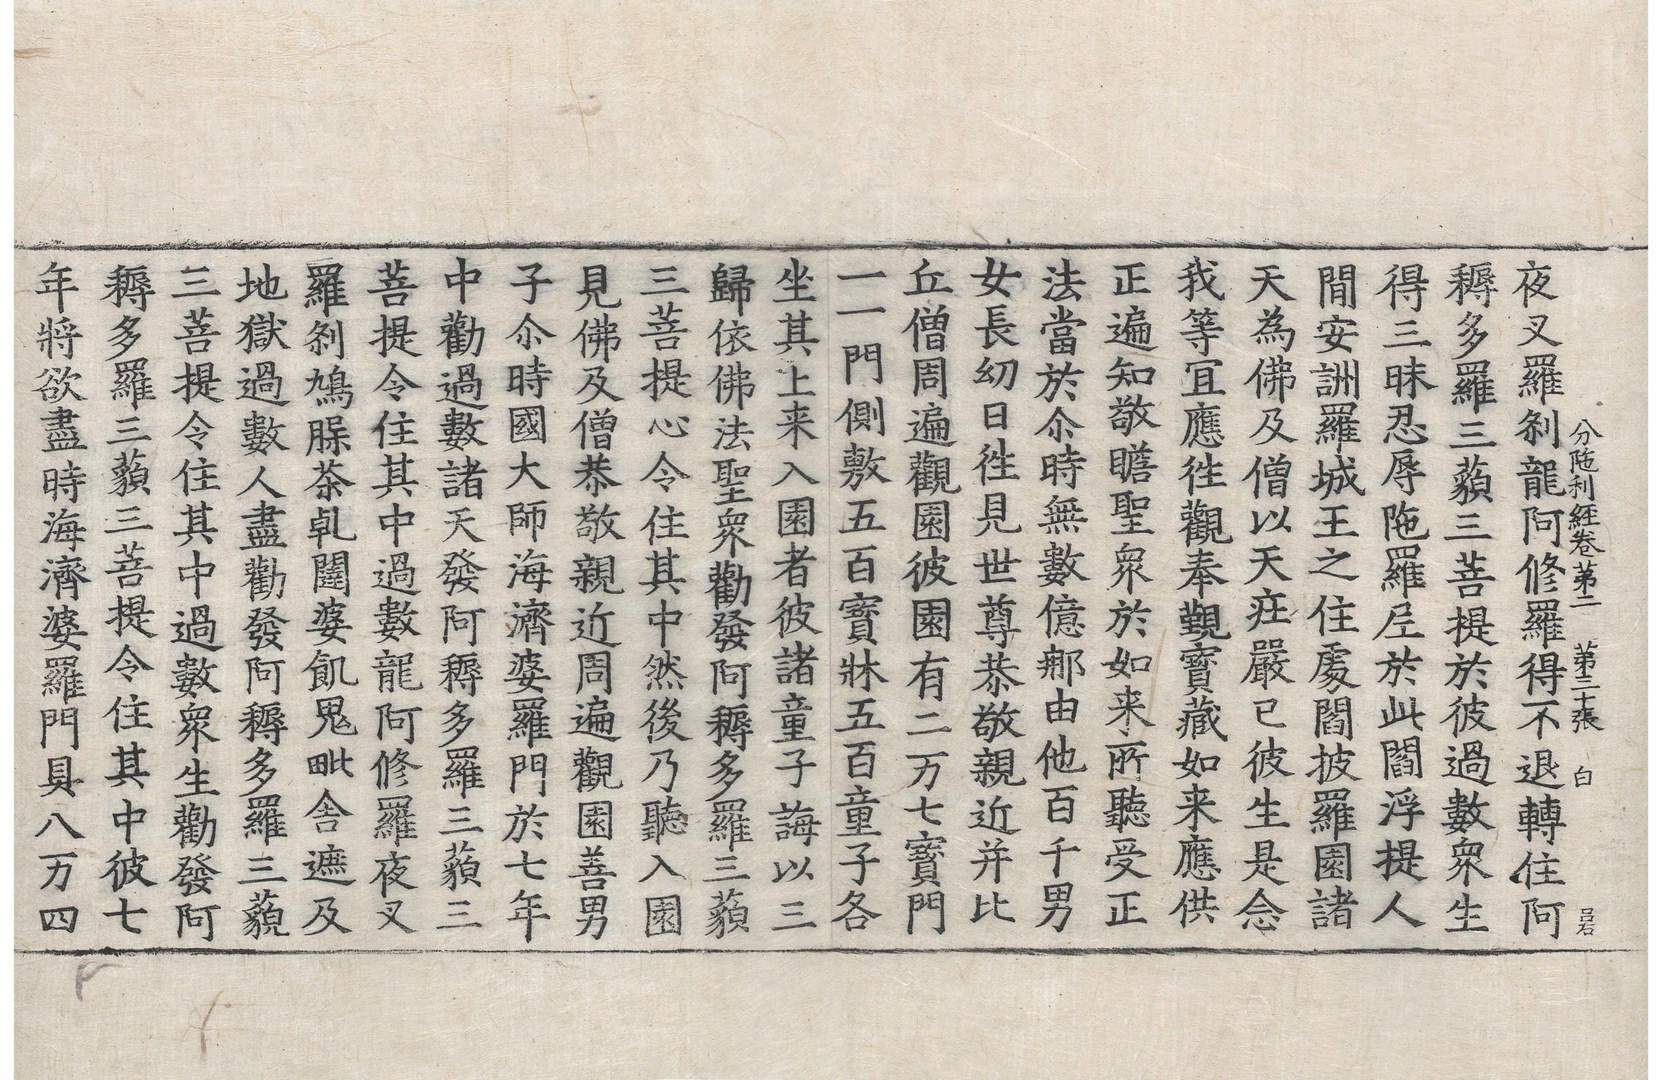 分陁利經卷第二　第二十張　白　呂石
夜叉羅刹龍阿修羅得不退轉住阿
耨多羅三藐三菩提於彼過數衆生
得三昧忍辱陁羅尼於此閻浮提人
間安訓羅城王之住處閻披羅園諸
天為佛及僧以天疰嚴已彼生是念
我等冝應徃觀奉覲寶藏如来應供
正遍知敬瞻聖衆於如来所聽受正
法當於尒時無數億鄁由他百千男
女長幼日徃見世尊恭敬親近并比
丘僧周遍觀園彼園有二万七寶門
一一門側敷五百寶牀五百童子各
坐其上来入園者彼諸童子誨以三
歸依佛法聖衆勸發阿耨多羅三藐
三菩提心令住其中然後乃聽入園
見佛及僧恭敬親近周遍觀園善男
子尒時國大師海濟婆羅門於七年
中勸過數諸天發阿耨多羅三藐三
菩提令住其中過數龍阿修羅夜叉
羅刹鳩腺茶乹闥婆飢鬼毗舎遮及
地獄過數人盡勸發阿耨多羅三藐
三菩提令住其中過數衆生勸發阿
耨多羅三藐三菩提令住其中彼七
年將欲盡時海濟婆羅門具八万四